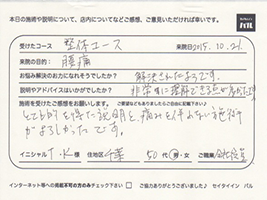 本日の施術や説明について、店内についてなどご感想、ご意見いただければ幸いです。
受けたコース 整体コース 来院日2015.10.21.
来院の目的: 腰痛
お悩み解決のお力になれそうでしたか? 解決されたようです.
説明やアドバイスはいかがでしたか? 非常に理解できる点が多かったです
施術を受けたご感想をお願いします。
とても的を得た説明と、痛みを伴わない施術
がよろしかったです。
イニシャル T.K 様 住地区 千葉 50代 男・女 ご職業 会社役員
インターネット等への掲載不可の方のみチェック下さい □ ご協力ありがとうございました♪ セイタイイン パル